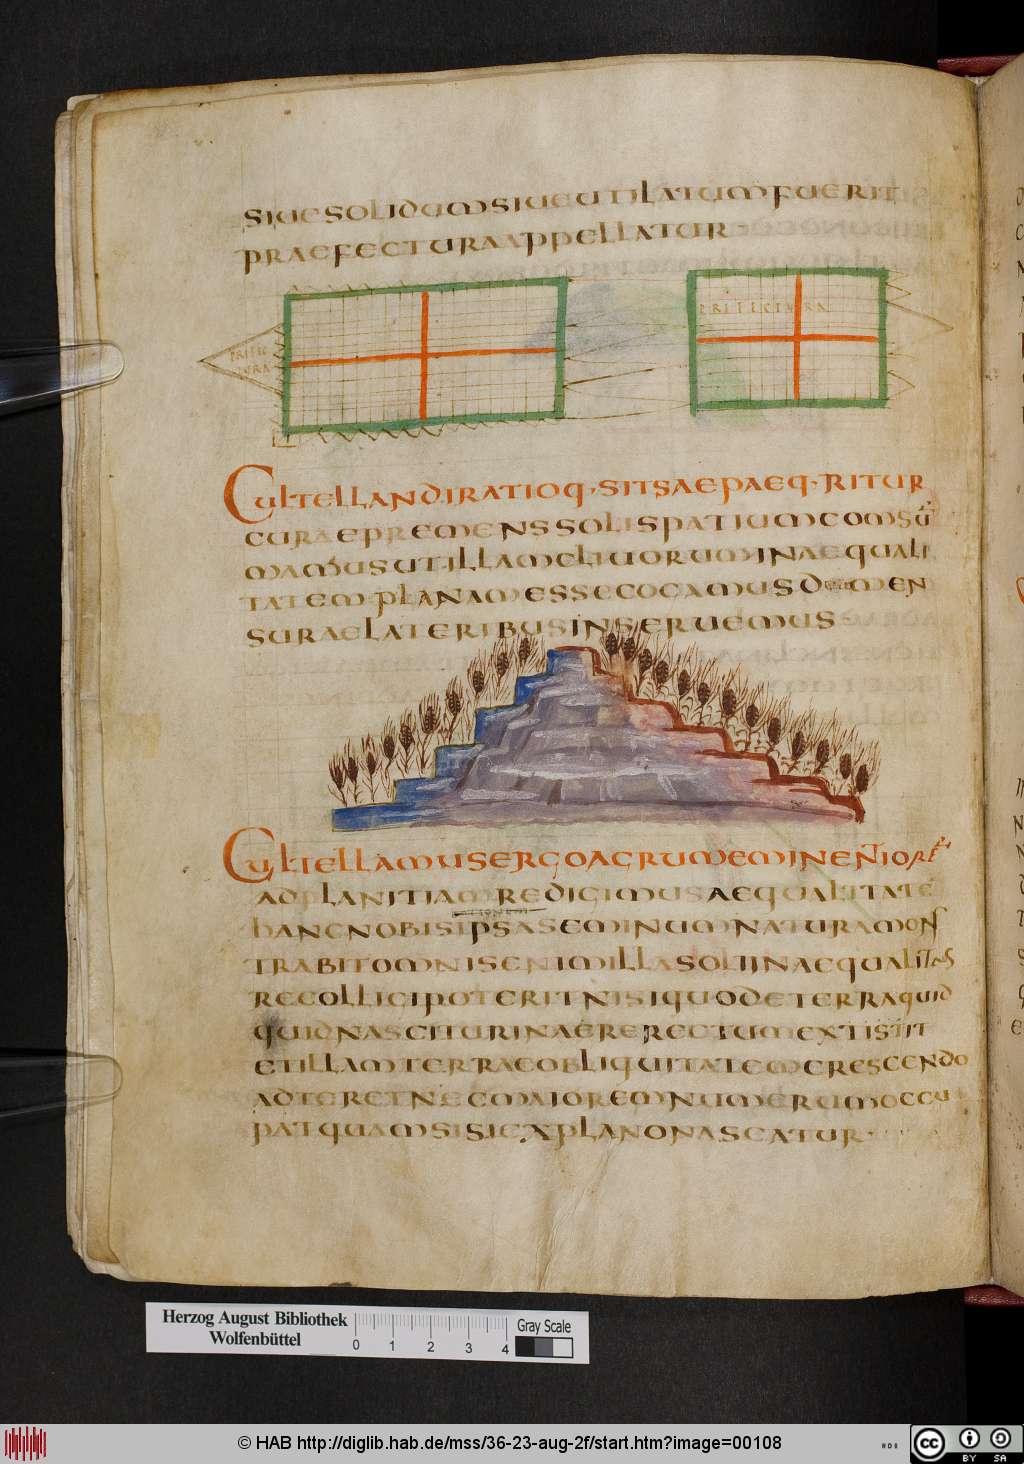 SIUESOLIDUMSIUEUTILATIUMFUERIT
PRAEFECTURAAPPELLATUR
PREFEC
TURA
PREFECTURA
CULTELLANDIRATIOQ·SITSAEPAEQ·RITUR
CURAEPREMENSSOLISPATIUMCOMSŪ
MAMUSUTILLAMCLIUORUMINAEQUALI
TATEMPLANAMESSECOCAMUSD MEN
SURAELATERIBUSINSERUEMUS
CULTELLAMUSERGOAGRUMEMINENTIORĒ
ADPLANITIAMREDIGIMUSAEQUALITATE
HANCNOBISIPSASEMINUMNATURAMONS
TRABITOMNISENIMILLASOLIINAEQUALITAS
RECOLLIGIPOTERITNISIQUODETERRAQUID
QUIDNASCITURINAERERECTUMEXTISTIT
ETILLAMTERRAEOBLIQUITATEMCRESCENDO
ADTERETNECMAIOREMNUMERUMOCCU
PATQUAMSISICXPLANONASCATUR·
Herzog August Bibliothek
Wolfenbüttel
0 1 2 3 4
Gray Scale
© HAB http://diglib.hab.de/mss/36-23-aug-2f/start.htm?image=00108
cc BY SA